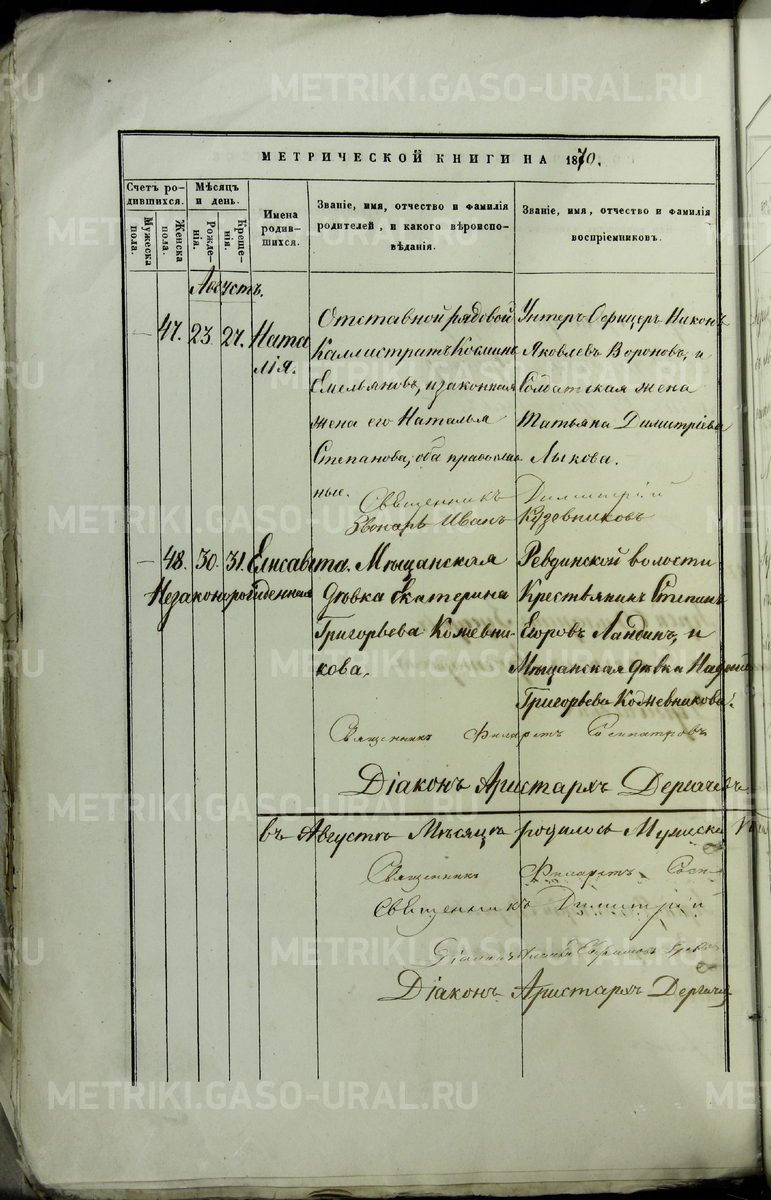 METRIKI.GASO-URAL.RU
МЕТРИЧЕСКОЙ КНИГИ НА 1870.
Счетъ родившихся.
Мужеска пола.
Женска пола.
Мѣсяцъ и день.
Рожденія.
Крещенія.
Имена родившихся.
Званіе, имя, отчество и фамилія родителей, и какого вѣроисповѣданія.
Званіе, имя, отчество и фамилія воспріемниковъ.
Августъ.
— 47. 23. 27. Ната Отставной рядовой Унтеръ Офицеръ Никонъ
лія. Каллистратъ Косминъ Яковлевъ Вороновъ, и
Емельяновъ, и законная Солдатская жена
жена его Наталья Татьяна Димитріева
Степанова, оба православ Лыкова.
ные. Священникъ Димитрій
Звонарь Иванъ
— 48. 30. 31. Елисавета. Мѣщанская Ревдинской волости
Незаконорожденная дѣвка Екатерина Крестьянинъ Степанъ
Григорьева Кожевни- Егоровъ Ландинъ, и
кова. Мѣщанская дѣвка
Григорьева Кожевникова.
Священникъ Филаретъ Сосипатровъ
Діаконъ Аристархъ Дергачевъ
въ Августѣ Мѣсяцѣ родилось Мужеска
Священникъ Филаретъ
Священникъ Димитрій
Діаконъ
Діаконъ Аристархъ